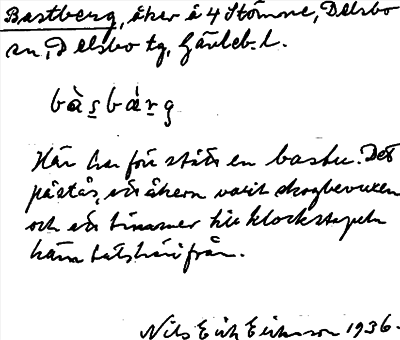 Bastberg, åker å 4 Stömne, Delsbo
sn, Delsbo tg, Gävleb. l.
bàs̲bár̲g
Här har förr stått en bastu. Det
påstås, att åkern varit skogbevuxen
och att timmer till klockstapeln
härifrån.
Nils Erik Eriksson 1936.